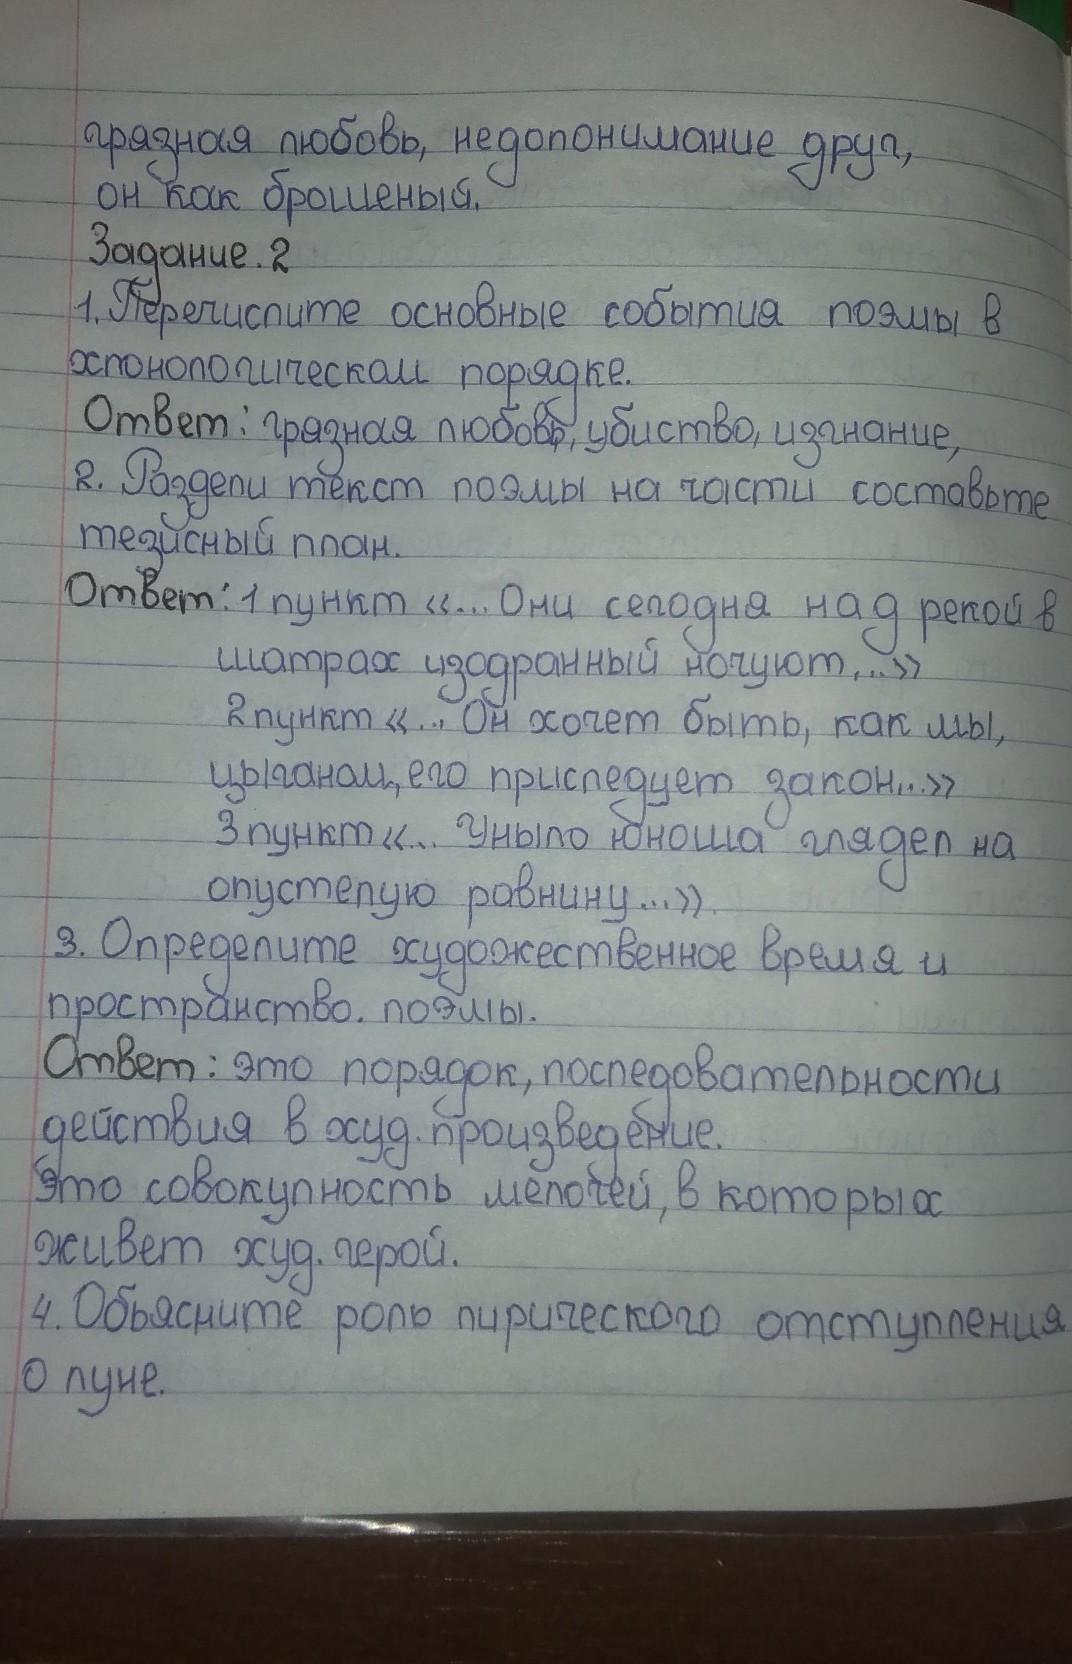 грязная любовь, недопонимание друг,
он как брошеный.
Задание.2
1. Перечислите основные события поэмы в
хлонологическом порядке.
Ответ: грязная любовь, убиство, изгнание,
2. Раздели текст поэмы на части составьте
тезисный план.
Ответ: 1 пункт «... Они сегодня над рекой в
шатрах изодранный ночуют...»
2 пункт «... Он хочет быть, как мы,
цыганом, его приследует закон...»
3 пункт «... Уныло юноша глядел на
опустелую равнину...».
3. Определите художественное время и
пространство. поэмы.
Ответ: это порядок, последовательности
действия в худ. произведение.
Это совокупность мелочей, в которых
живет худ. герой.
4. Обьясните роль лирического отступления
о луне.